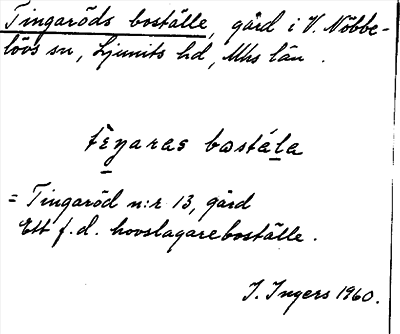 Tingaröds boställe, gård i V. Nöbbe-
lövs sn, Ljunits hd, Mhs län.
tèŋaras bostála
= Tingaröd n:r 13, gård
Ett f.d. hovslagareboställe.
I. Ingers 1960.